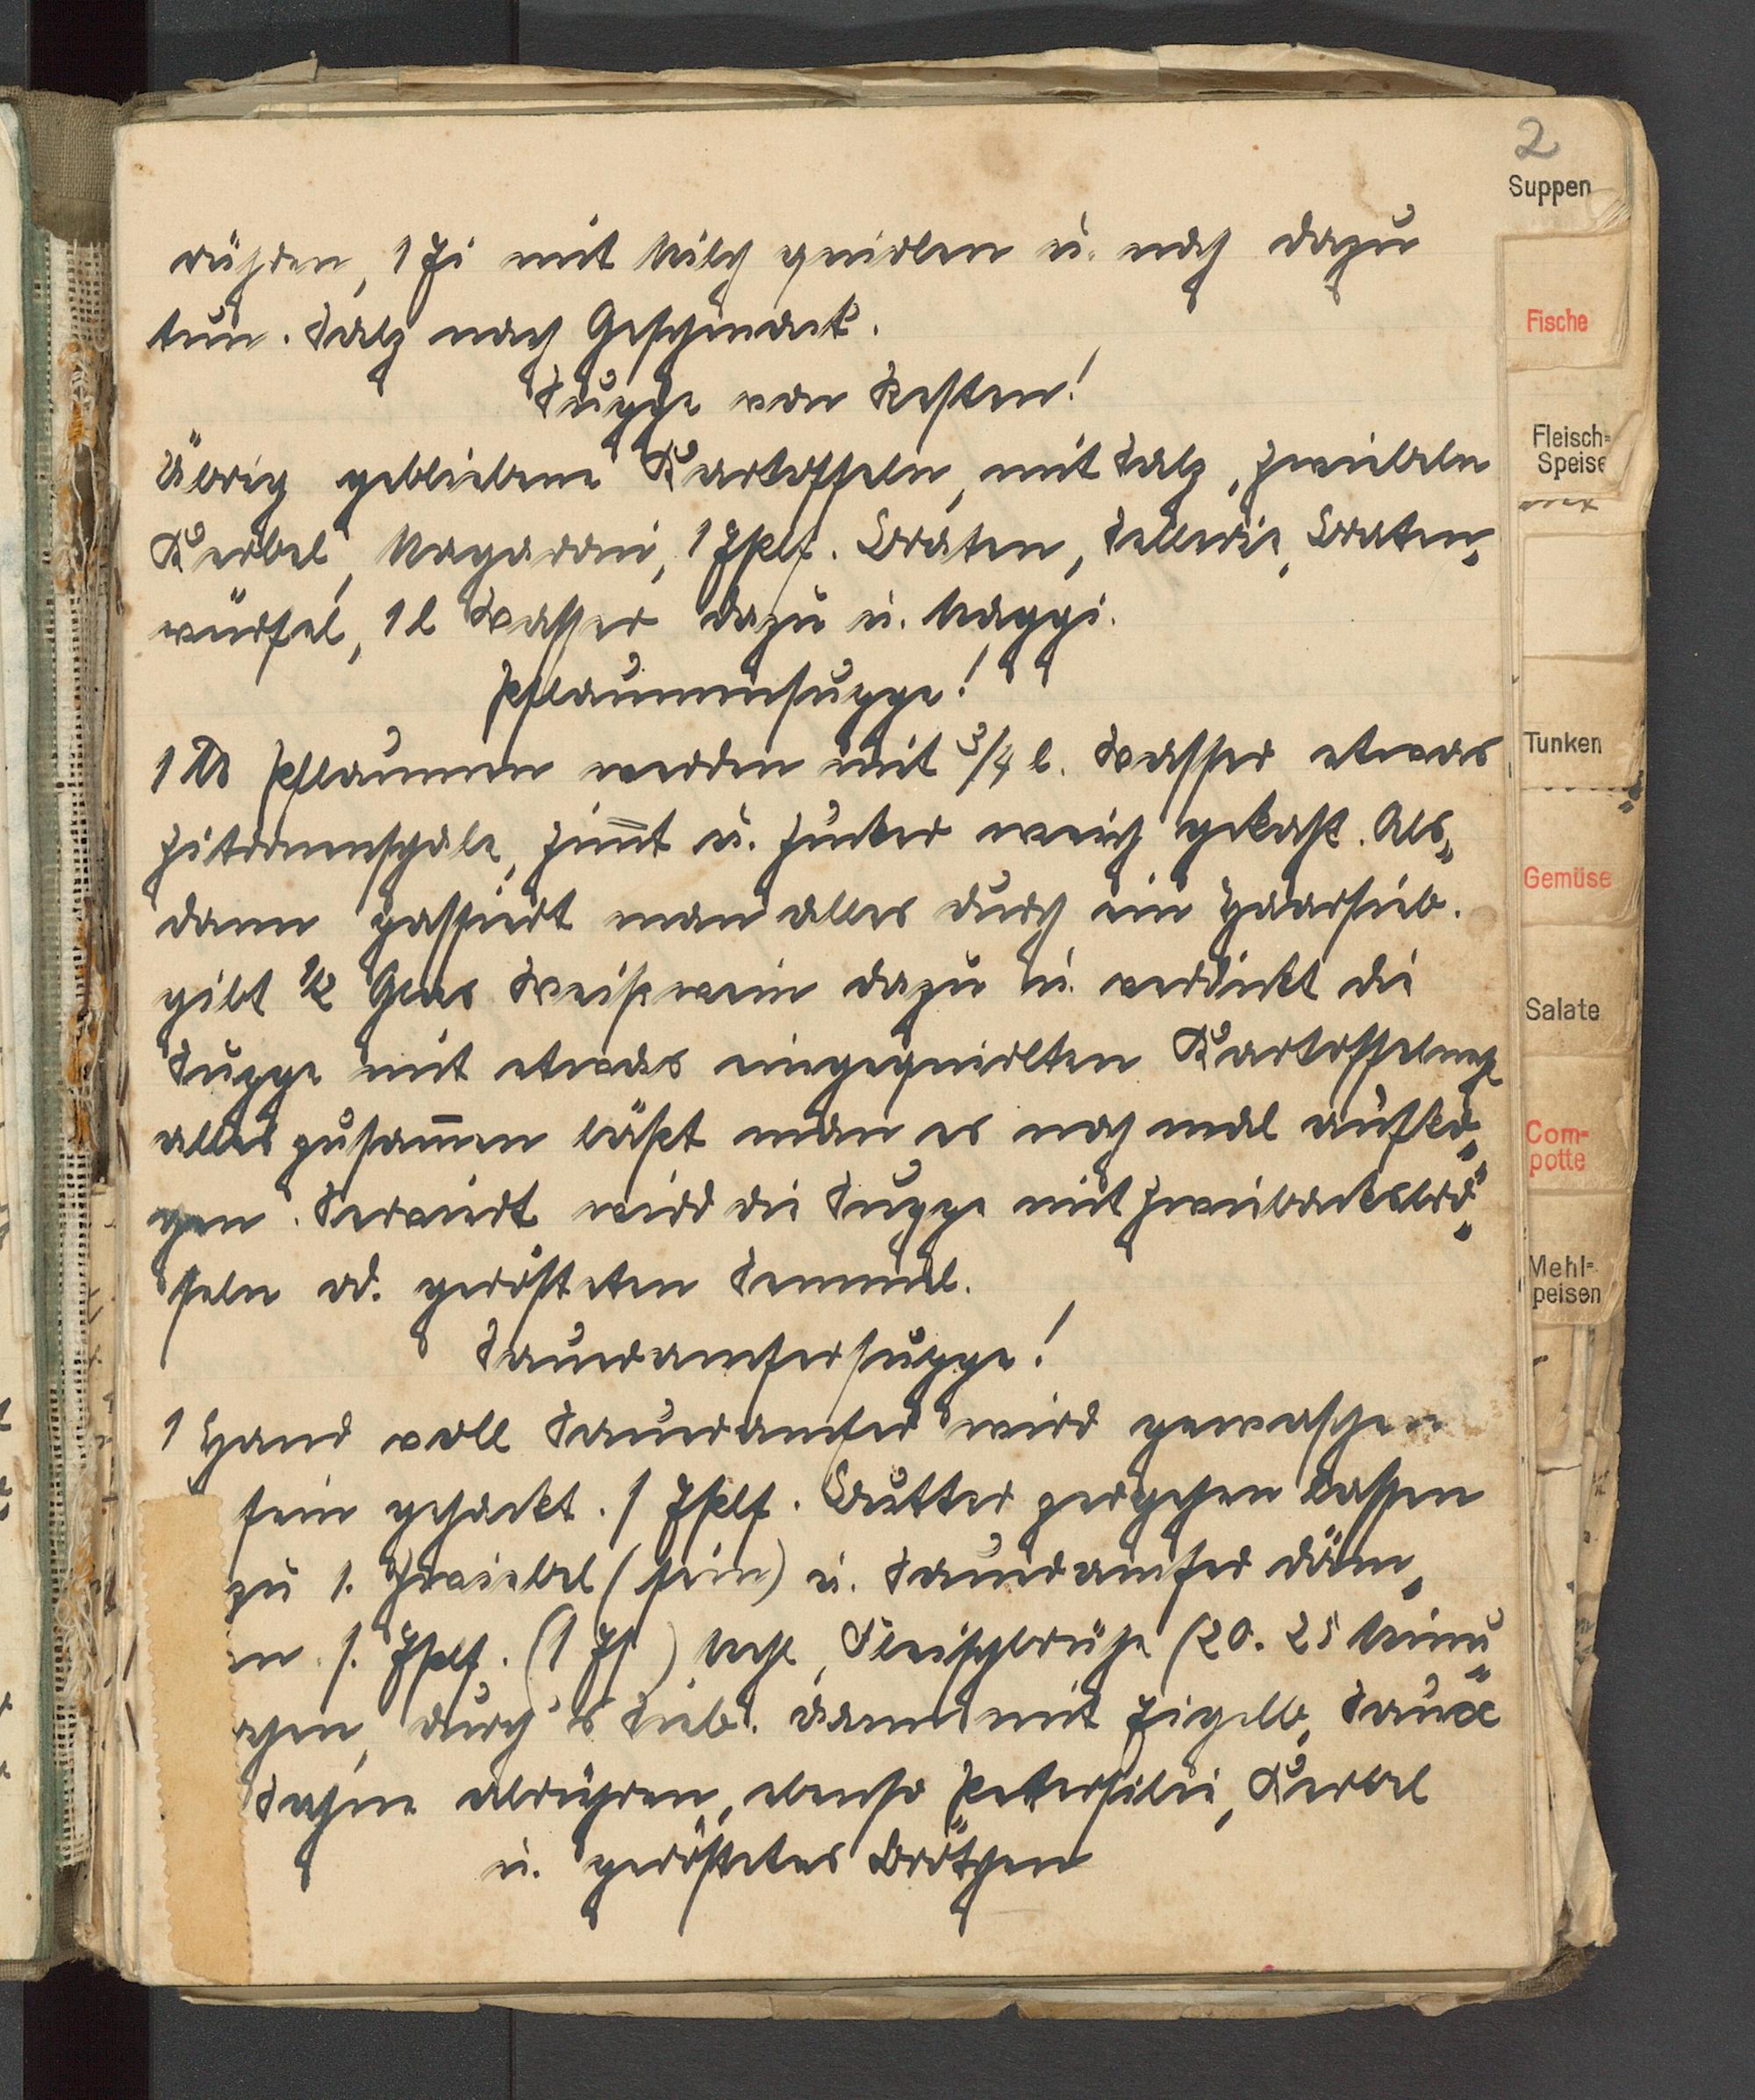 2
Suppen
rühren, 1 Ei mit Milch quirlen u. noch dazu
tun. Salz nach Geschmack.
Suppe von Resten!
Übrig gebliebene Kartoffeln, mit Salz, Zwiebeln
Kerbel, Magaroni, 1 Eßlf. Braten, Sellerie, Braten„
würfel, 1 l Wasser dazu u. Maggi.
Pflaumensuppe!
1 ℔ Pflaumen werden mit 3/4 l. Wasser etwas
Zitronenschale, Zimt u. Zucker weich gekocht. Als„
dann passiert man alles durch ein Haarsieb.
gibt 1/2 Glas Weißwein dazu u. verdickt die
Suppe mit etwas eingequirlten Kartoffelmehl
alles zusammen läßt man es noch mal aufko„
chen. Serviert wird die Suppe mit Zwiebacksbrö„
seln od. gerösteten Semmel.
Sauerampfersuppe!
1 Hand voll Sauerampfer wird gewaschen
fein gehackt. 1 Eßlf. Butter zergehen lassen
zu 1. Zwiebel (fein) u. Sauerampfer däm„
en 1. Eßlf. (1 Eß) Mehl, Fleischbrühe (20. 25 Minu„
chen, durch's Sieb. dann mit Eigelb, Saure
Sahne abrühren, ebenso Petersilie, Kerbel
u. geröstetes Brötchen
Fische
Fleisch=
Speise
Tunken
Gemüse
Salate
Com-
potte
Mehl=
peisen